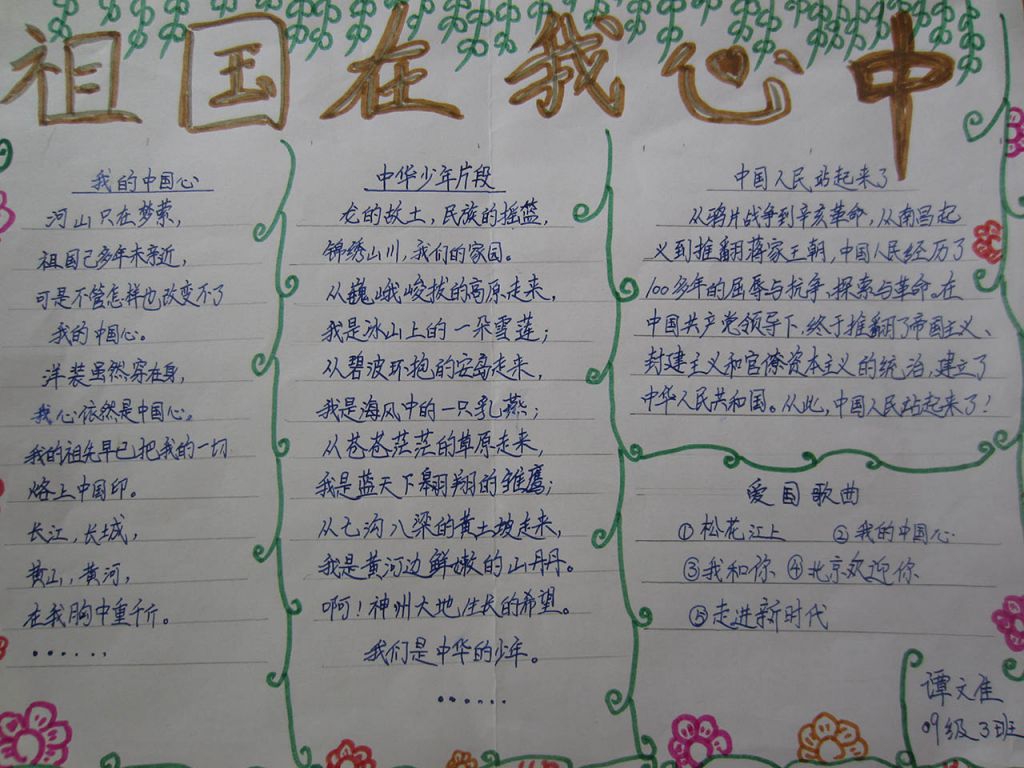 祖国在我心中
我的中国心
河山只在梦萦，
祖国已多年未亲近，
可是不管怎样也改变不了
我的中国心。
洋装虽然穿在身，
我心依然是中国心。
我的祖先早已把我的一切
烙上中国印。
长江，长城，
黄山，黄河，
在我胸中重千斤。
······
中华少年片段
龙的故土，民族的摇篮，
锦绣山川，我们的家园。
从巍峨峻拔的高原走来，
我是冰山上的一朵雪莲；
从碧波环抱的宝岛走来，
我是海风中的一只乳燕；
从苍苍茫茫的草原走来，
我是蓝天下翱翔的雏鹰；
从七沟八梁的黄土坡走来，
我是黄河边鲜嫩的山丹丹。
啊！神州大地生长的希望。
我们是中华的少年。
······
中国人民站起来了
从鸦片战争到辛亥革命，从南昌起
义到推翻蒋家王朝，中国人民经历了
100多年的屈辱与抗争、探索与革命。在
中国共产党领导下，终于推翻了帝国主义、
封建主义和官僚资本主义的统治，建立了
中华人民共和国。从此，中国人民站起来了！
爱国歌曲
①松花江上 ②我的中国心
③我和你 ④北京欢迎你
⑤走进新时代
谭文佳
09级3班